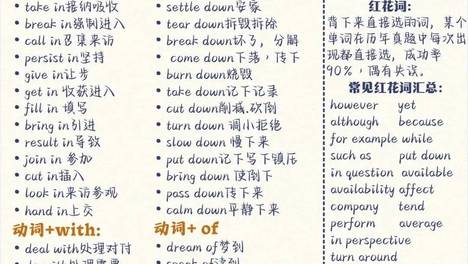 • take in接纳吸收
• break in强制进入
• call in召集来访
• persist in坚持
• give in让步
• get in 收获进入
• fill in 填写
• bring in引进
• result in导致
• join in 参加
• cut in插入
• look in来访参观
• hand in上交
动词+with:
• deal with处理对付
• settle down安家
• tear down拆毁拆除
• break down坏了，分解
• come down下落，传下
• burn down烧毁
• take down记下记录
• cut down削减,砍倒
• turn down 调小拒绝
• slow down 慢下来
• put down记下写下镇压
• bring down 使倒下
• pass down传下来
• calm down平静下来
动词+ of
• dream of梦到
• speak of谈到
红花词:
背下来直接选的词，某个
单词在历年真题中每次出
现都直接选，成功率
90％，偶有失误。
常见红花词汇总:
however yet
although because
for example while
such as put down
in question available
availability affect
company tend
perform average
in perspective
turn around